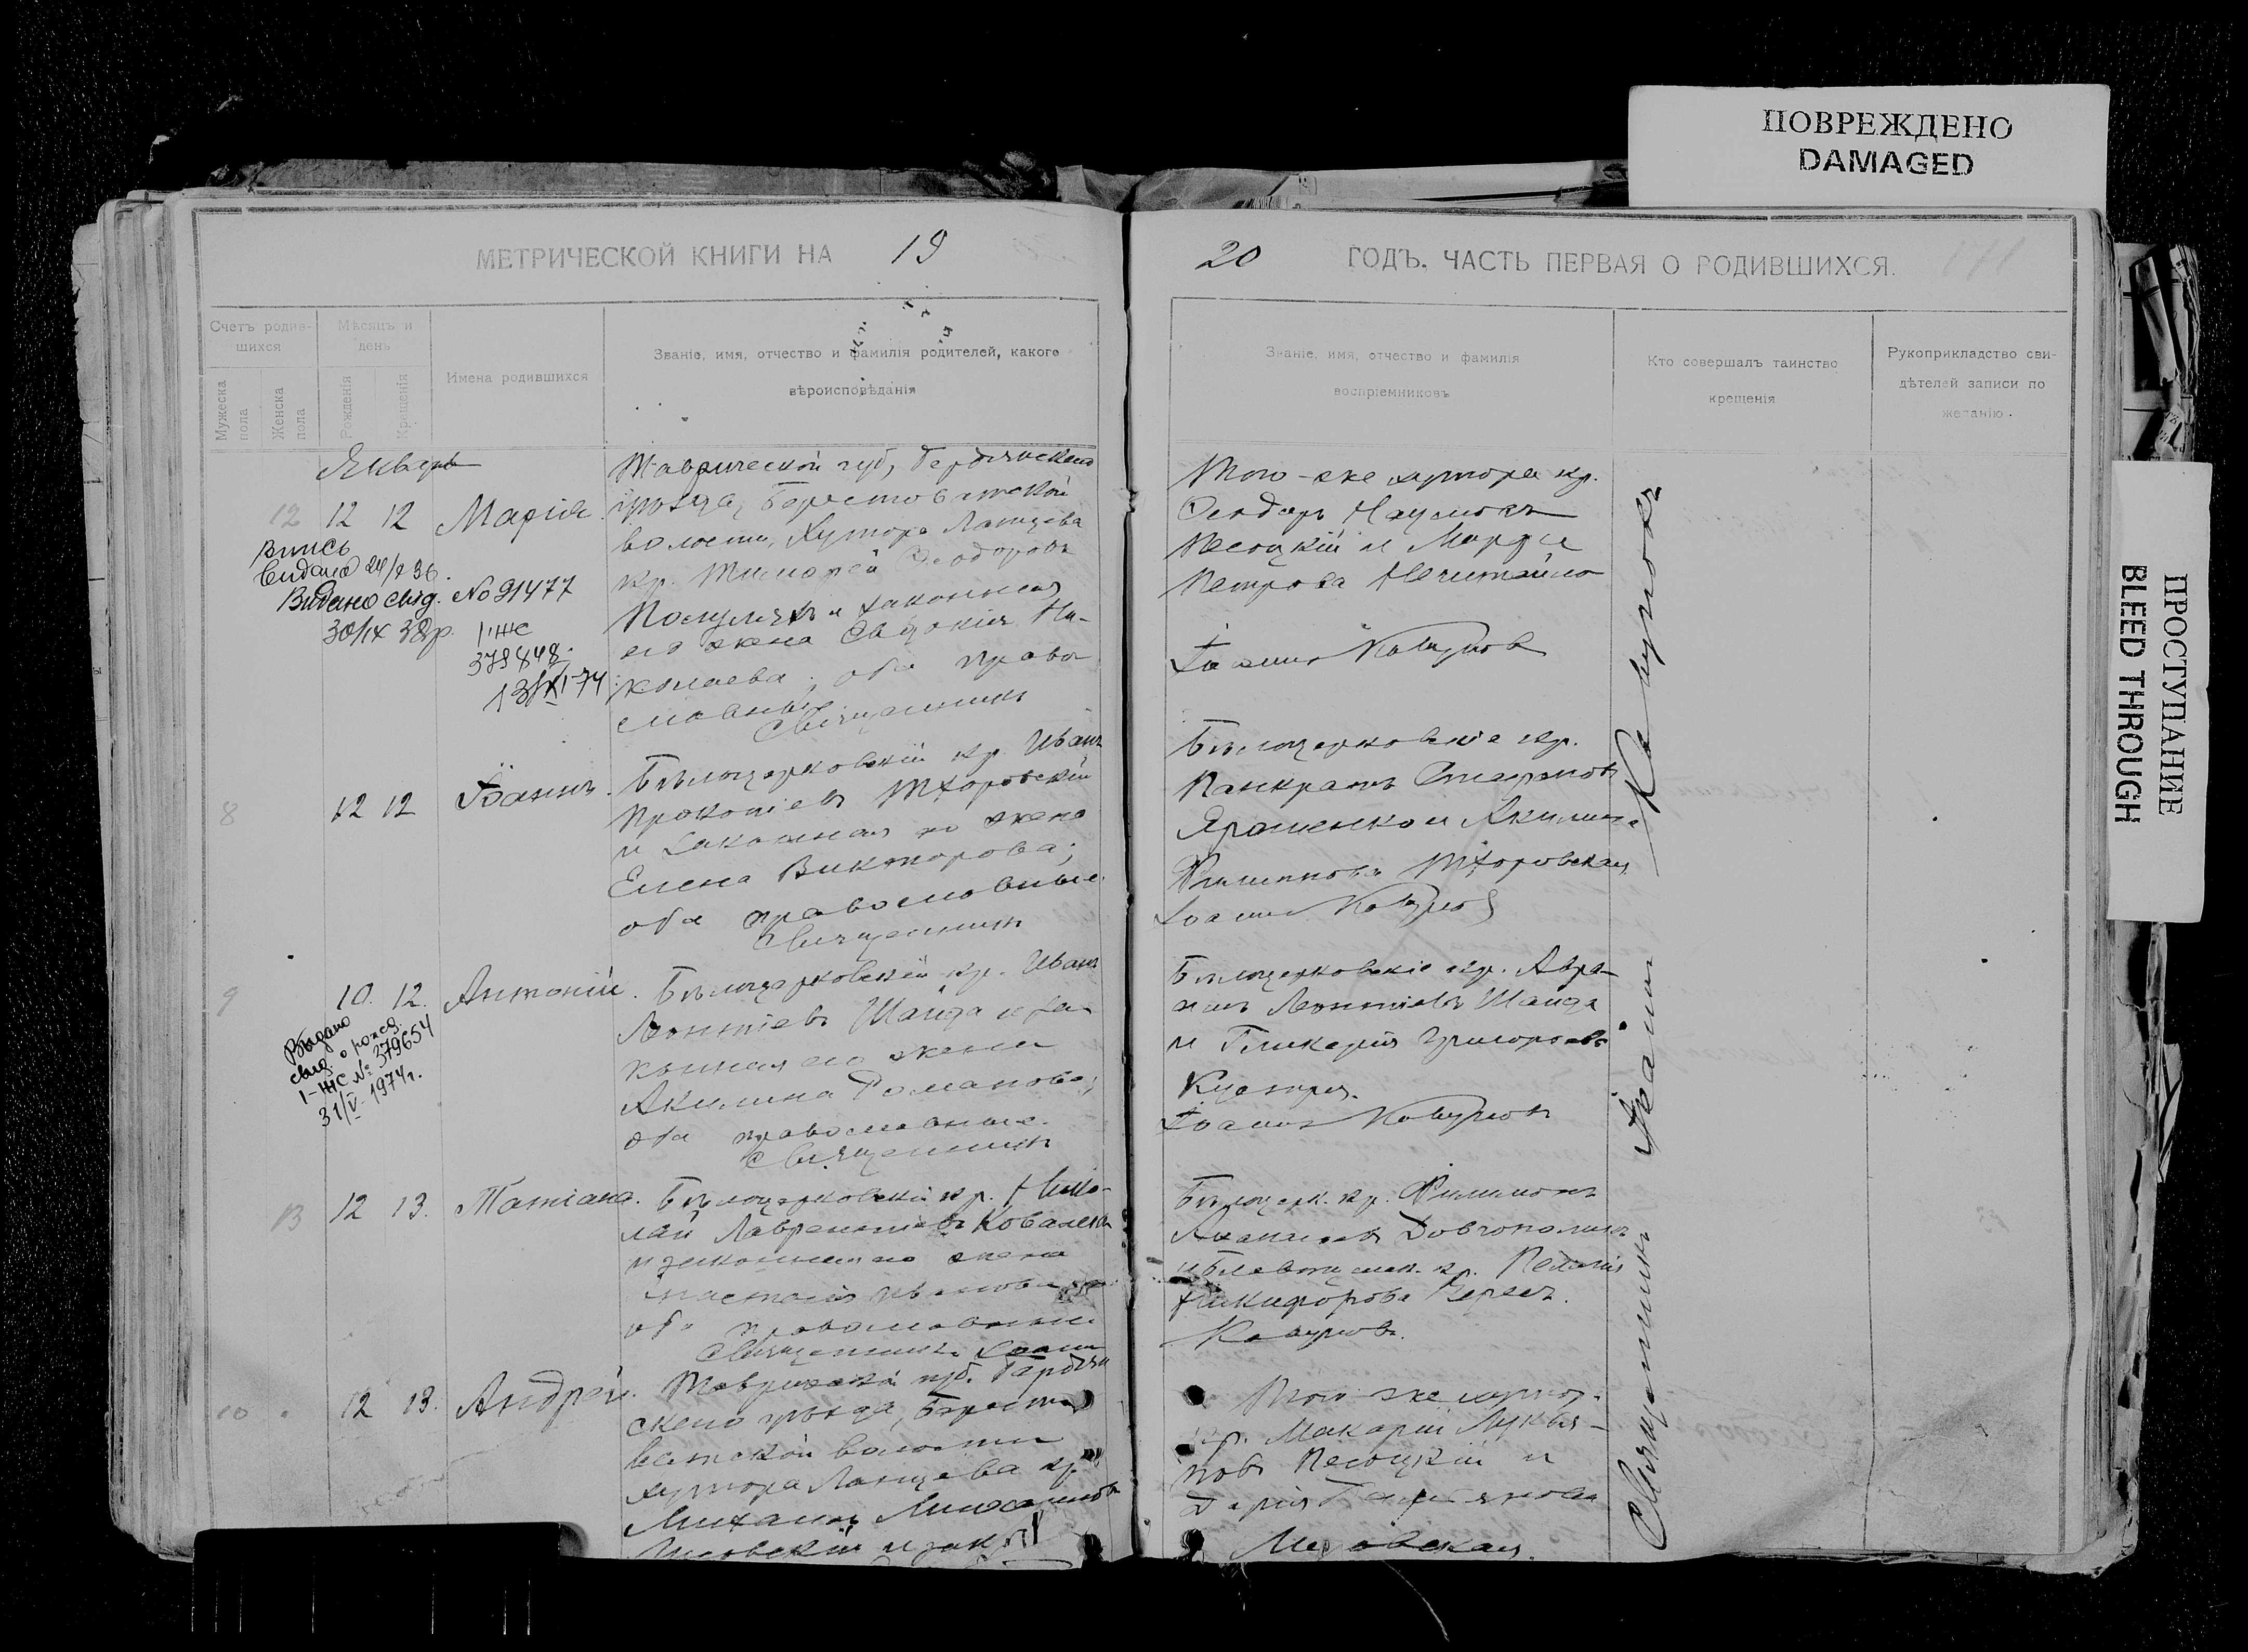 ПОВРЕЖДЕНО
DAMAGED
ПРОСТУПАНИЕ
BLEED THROUGH
МЕТРИЧЕСКОЙ КНИГИ НА 19
20 ГОДЪ. ЧАСТЬ ПЕРВАЯ О РОДИВШИХСЯ.
Счетъ родив-
шихся
Мужеска
пола
Женска
пола
Мѣсяцъ и
день
Рожденія
Крещенія
Имена родившихся
Званіе, имя, отчество и фамилія родителей, какого
вѣроисповѣданія
Званіе, имя, отчество и фамилія
воспріемниковъ
Кто совершалъ таинство
крещенія
Рукоприкладство сви-
дѣтелей записи по
желанію.
Январь
12 12 12 Марія
Таврической губ, Бердянскаго
уѣзда, Берестоватской
волости, Хутора Ланцева
кр. Тимоѳей Ѳеодоровъ
и законная
его жена Евдокія Ни-
колаева; оба право
славные
Священникъ
Того-же хутора кр.
Ѳеодоръ Наумовъ
Песоцкій и Марѳа
Петрова Нечитайло
Іоаннъ Ковуновъ
Видано 24/
Видано свид. № 91477
30/IX 38р.
1ЖС
379848.
13/XI-74
8 12 12 Іоаннъ.
Бѣлоцерковскій кр. Иванъ
Прокопіевъ Тхоровскій
и законная его жена
Елена Викторова;
оба православные.
Священникъ
Бѣлоцерковскіе кр.
Панкратъ Стефановъ
Ярошенко и Акилина
Филиппова Тхоровская
Іоаннъ Ковуновъ
9 10. 12. Антоній.
Бѣлоцерковскій кр. Иванъ
Леонтіевъ Шайда и за-
конная его жена
Акилина Романова;
оба православные.
Священникъ
Бѣлоцерковскіе кр. Авра-
амъ Леонтіевъ Шайда
и Гликерія Григорьева
Іоаннъ Ковуновъ
Выдано
свид. о рожд.
1-ЖС № 379654
31/V 1974г.
13 12 13. Татіана.
Бѣлоцерковскій кр. Нико-
лай Лаврентіевъ Коваленко
и законная его жена
оба православные
Священникъ Іоаннъ
Бѣлоцерк. кр. Филимонъ
Довгополикъ
Никифорова
Ковуновъ.
10 12 13. Андрей.
Таврической губ. Бердян
скаго уѣзда, Бересто
ватской волости
хутора Ланцева кр.
Михаилъ Михаиловъ
и зак
Того же хутор.
кр. Макарій Лукья-
новъ Песоцкій и
Дарія
Священникъ Іоаннъ Ковуновъ